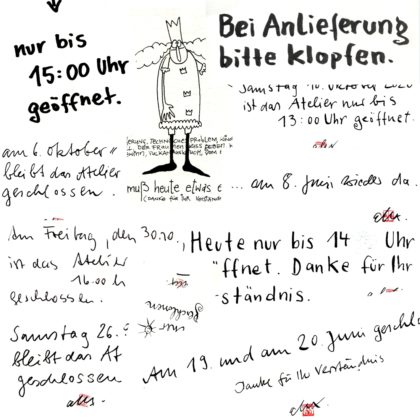 nur bis
15:00 Uhr
geöffnet.
Bei Anlieferung
bitte klopfen.
Samstag 10. Oktober 2020
ist das Atelier nur bis
13:00 Uhr geöffnet.
am 6. Oktober
bleibt das Atelier
geschlossen.
muß heute etwas
am 8. Juni wieder da.
Am Freitag, den 30.10.,
ist das Atelier
geschlossen.
Heute nur bis 14 Uhr
ffnet. Danke für Ihr
ständnis.
Samstag 26.
bleibt das At
geschlossen
Am 19. und am 20. Juni geschl
Danke für Ihr Verständnis